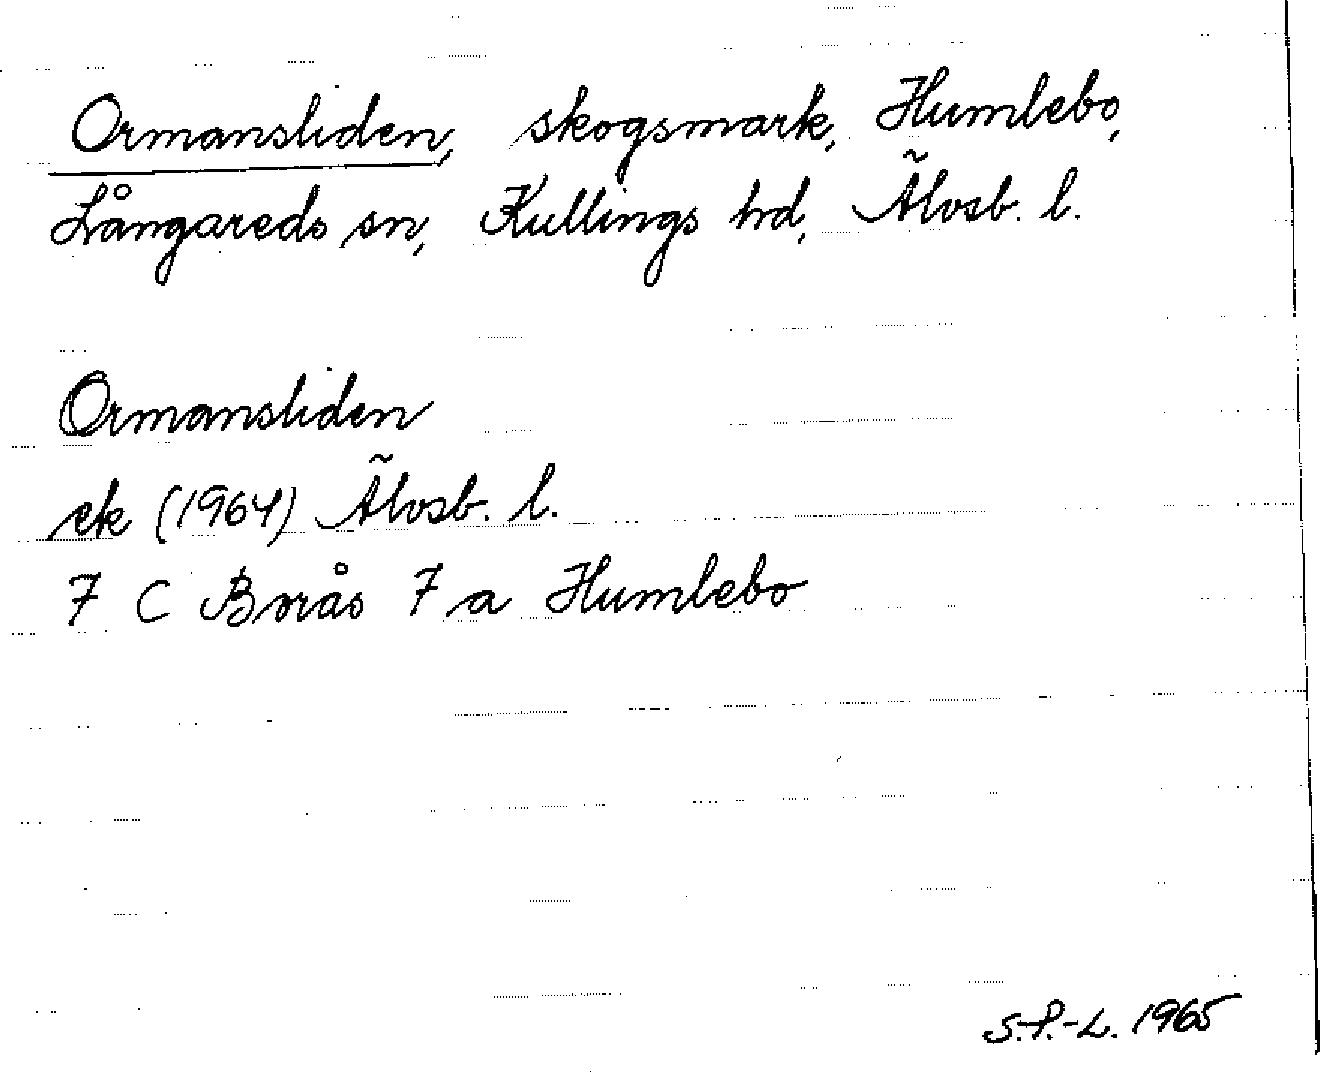 Ormansliden, skogsmark, Humlebo,
Långareds sn, Kullings hd, Älvsb. l.
Ormansliden
ek (1964) Älvsb. l.
7 C Borås 7 a Humlebo
S.P.-L. 1965